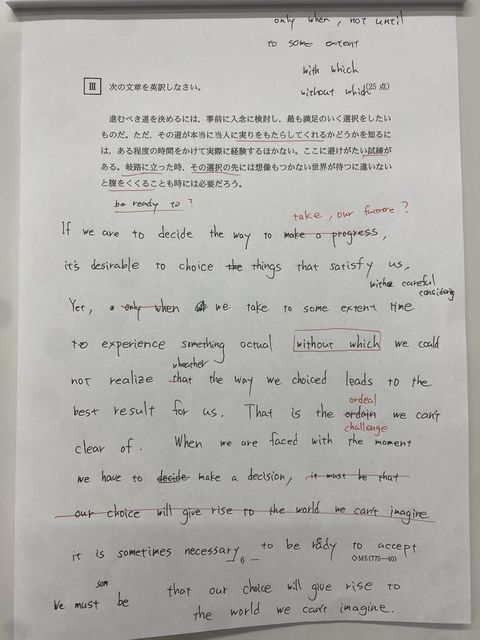 only when, not until
to some extent
with which
without which
III 次の文章を英訳しなさい。 (25点)
進むべき道を決めるには，事前に入念に検討し，最も満足のいく選択をしたい
ものだ。ただ，その道が本当に当人に実りをもたらしてくれるかどうかを知るに
は，ある程度の時間をかけて実際に経験するほかない。ここに避けがたい試練が
ある。岐路に立った時，その選択の先には想像もつかない世界が待つに違いない
と腹をくくることも時には必要だろう。
be ready to ?
take, our furture ?
If we are to decide the way to make a progress,
it's desirable to choice the things that satisfy us,
with careful
considering
Yet, only when we take to some extent time
to experience something octual without which we could
wheather
not realize that the way we choiced leads to the
ordeal
best result for us. That is the we can't
challenge
clear of. When we are faced with the moment
we have to decide make a decision, it must be that
our choice will give rise to the world we can't imagine
it is sometimes necessary to be ready to accept
— 6 — ◇M5(775—40)
We must be that our choice will give rise to
the world we can't imagine.